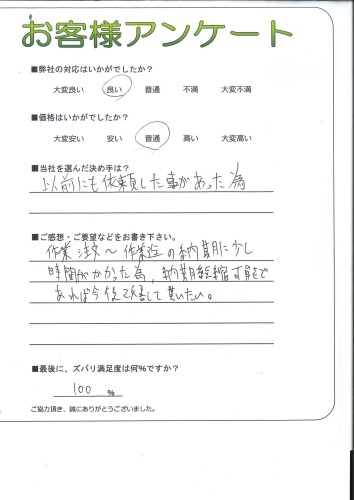 お客様アンケート
■弊社の対応はいかがでしたか？
大変良い 良い 普通 不満 大変不満
■価格はいかがでしたか？
大変安い 安い 普通 高い 大変高い
■当社を選んだ決め手は？
以前にも依頼した事があった為
■ご感想・ご要望などをお書き下さい。
作業注文〜作業迄の納期に少し
時間がかかった為、納期短縮可能で
あれば今後改善して貰いたい。
■最後に、ズバリ満足度は何％ですか？
100 ％
ご協力頂き、誠にありがとうございました。